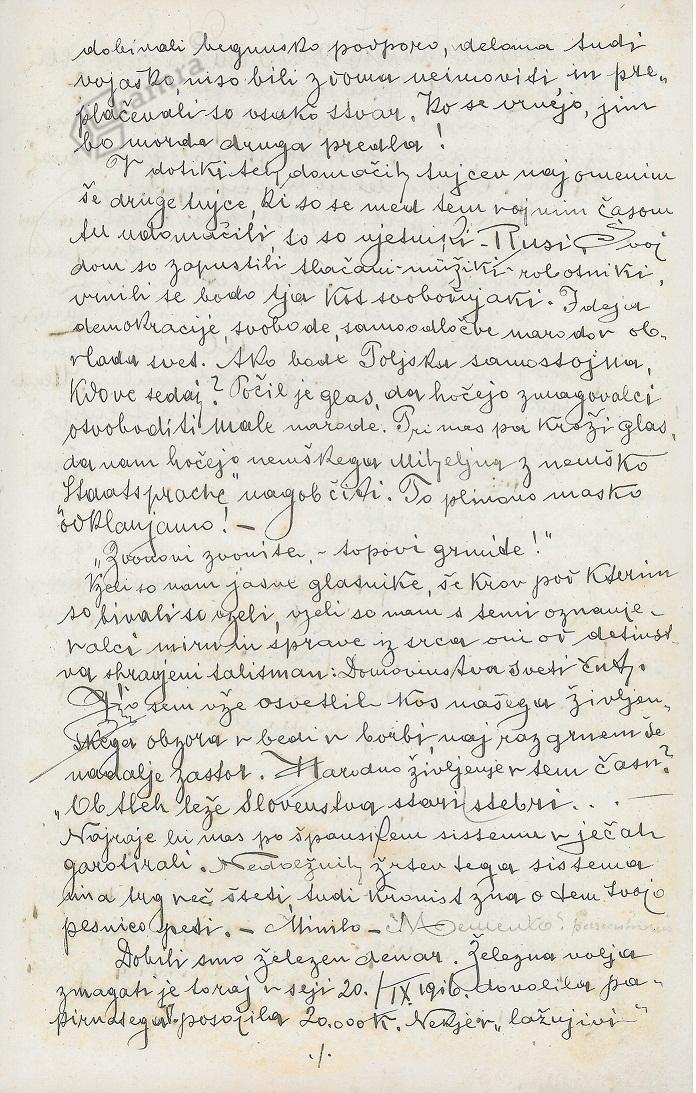 dobivali begunsko podporo, deloma tudi
vojaško, niso bili z doma neimoviti in pre„
plačevali so vsako stvar. Ko se vrnejo, jim
bo morda druga predla!
V dotiki teh domačih tujcev naj omenim
še druge tujce, ki so se med tem vojnim časom
tu udomačili, to so vjetniki - Rusi. Svoj
dom so zapustili tlačani - mužiki - robotniki,
vrnili se bodo tja kot svobodnjaki. Ideja
demokracije, svobode, samoodločbe narodov ob-
vlada svet. Ako bode Poljska samostojna,
Kdo ve sedaj? Počil je glas, da hočejo zmagovalci
osvoboditi male narode. Pri nas pa kroži glas,
da nam hočejo nemškega Miheljna z nemško
"Staatsprache" nagobčiti. To plinovo masko
odklanjamo! -
„Zvonovi zvonite, - topovi grmite!"
Vzeli so nam jasne glasnike, še krov pod kterim
so bivali so vzeli, vzeli so nam s temi oznanje-
valci miru in sprave iz srca oni od detinst
va shranjeni talisman: Domovinstva sveti čut.
sem vže osvetlil kos našega življen„
skega obzora v bedi v borbi, naj razgrnem še
nadalje zastor. Narodno življenje v tem času?
„Ob tleh leže Slovenstva stari stebri... -
Najraje bi nas po španskem sistemu v ječah
garotirali. Nedolžnih žrtev tega sistema
ima trg več šteti, tudi kronist zna o tem svojo
pesnico peti. - Minilo - Memento!
Dobili smo železen denar. Železna volja
zmagati je toraj v seji 20./IX.1916. dovolila pa-
pirnatega posojila 20.000 K. Nekje v „lažnjivi"
./.